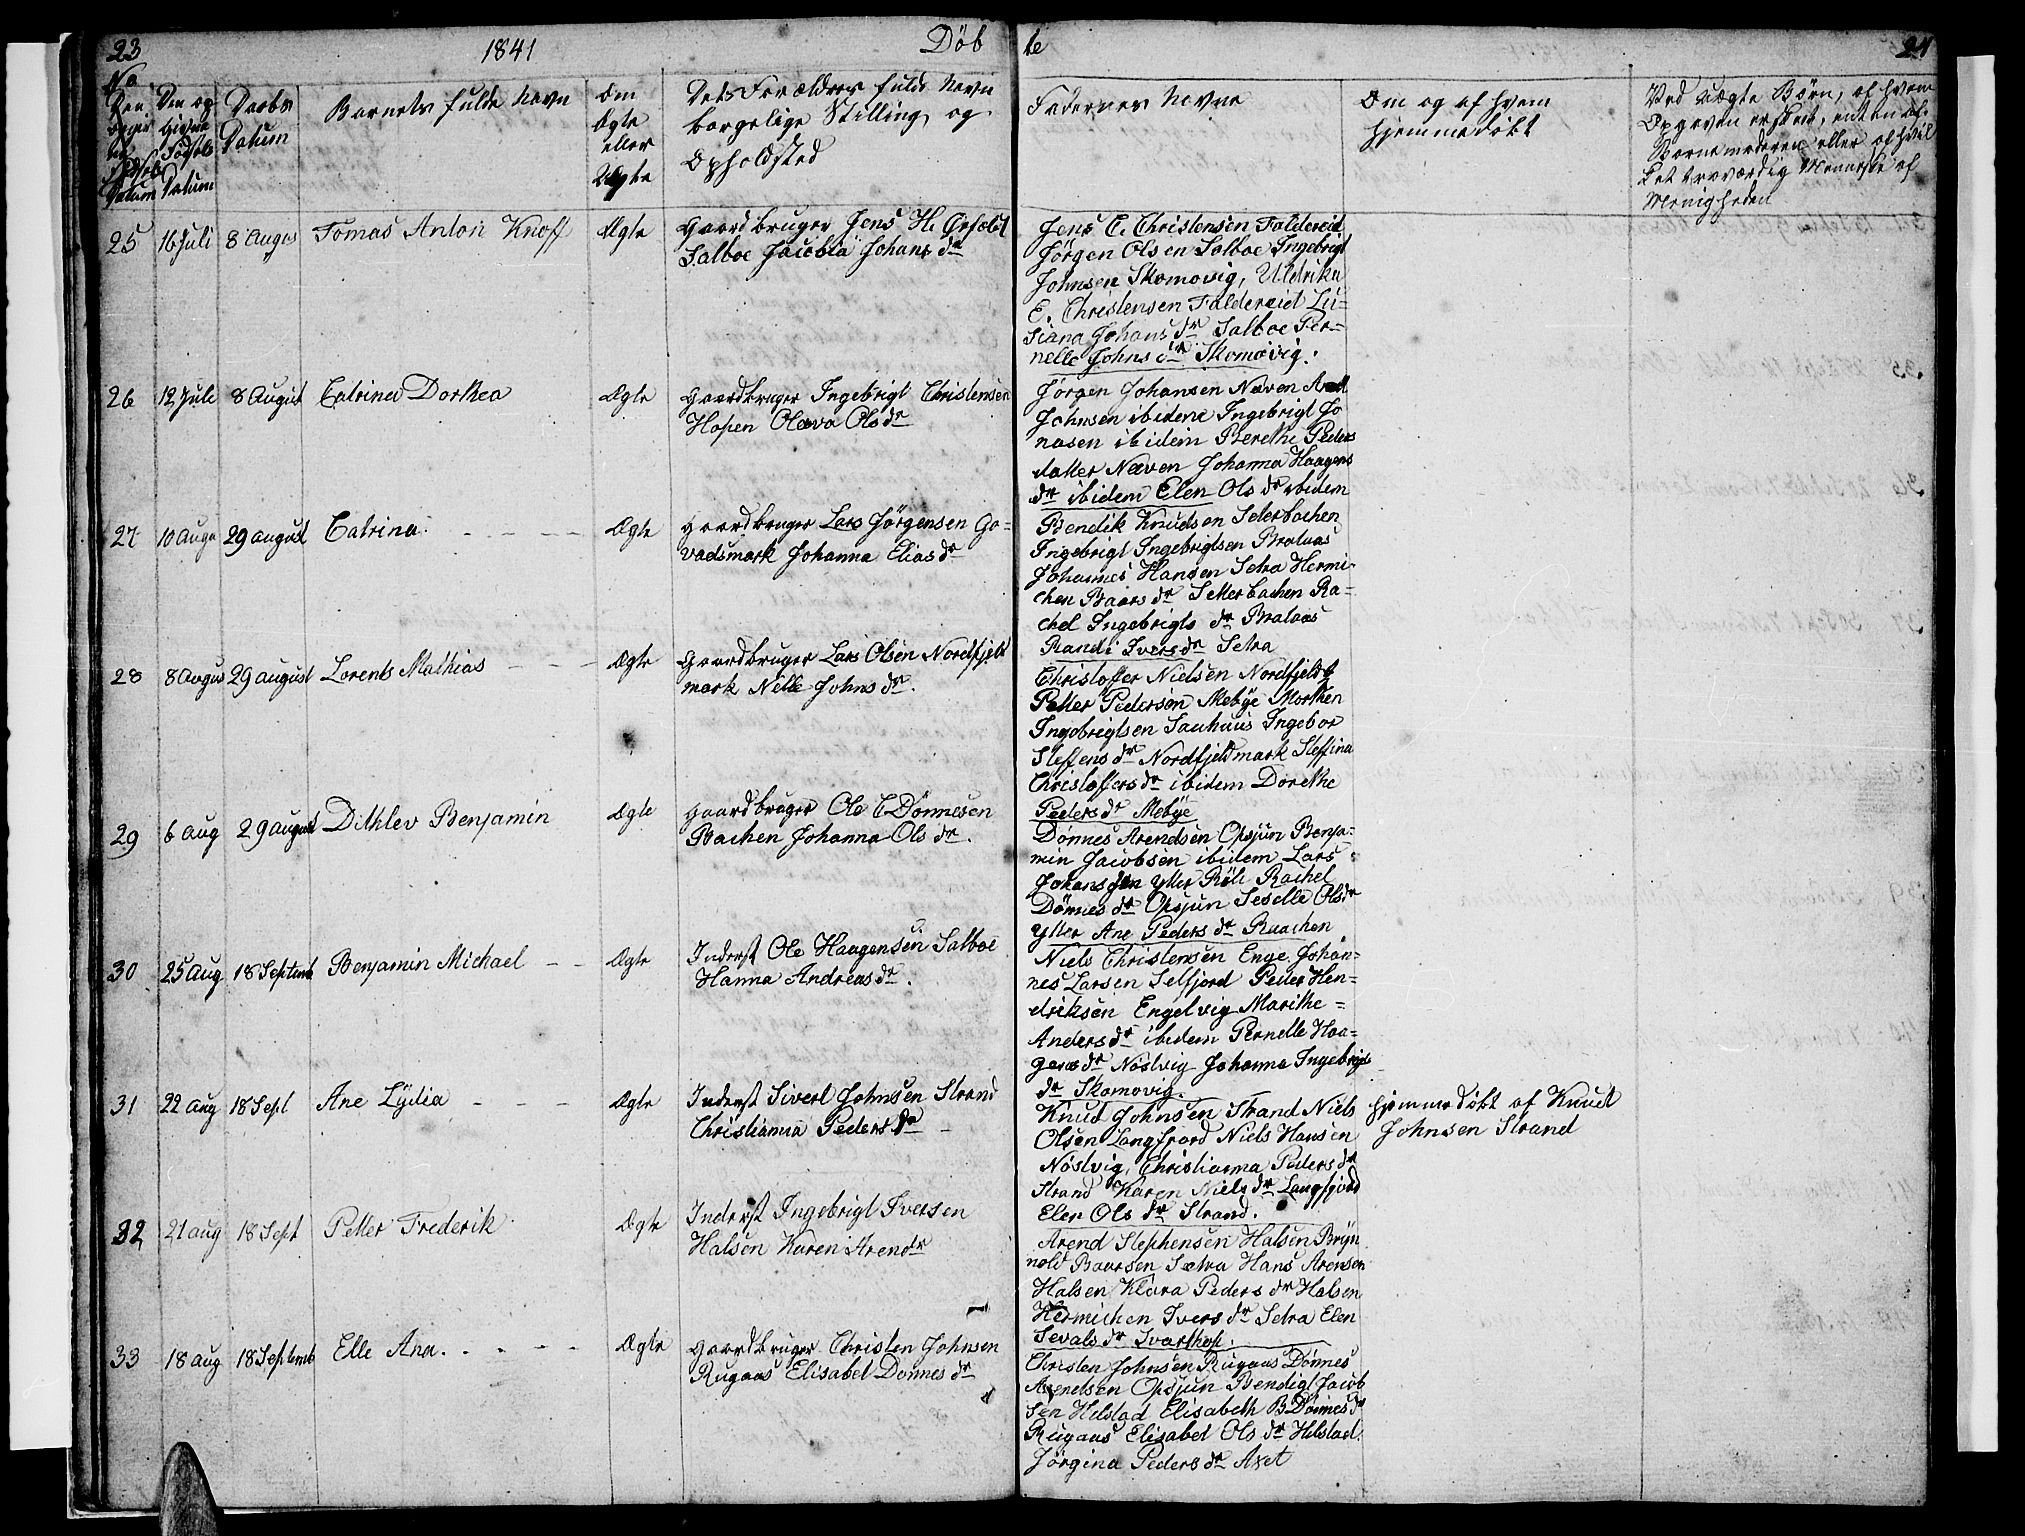 23 1841 Döbte 24
No
Den op givne Födsels Datum
Daabs Datum
Barnets fulde Navn
Om Ægte eller Uægte
Dets Forældres fulde Navn borgelige Stilling og Opholdsted
Fadernes Navne
Om og af hvem hjemmedöbt
Ved uægte Börn, af hvem Opgaven er skeet, enten af Barnemoderen eller af hvilket troværdig Menneske af Menigheden
25 16 Juli 8 Augus Tomas Anton Knoff Ægte Gaardbruger Jens H.
Salboe Jacobia Johans dr
Jens C. Christensen Foldereid
Jörgen Olsen Salboe Ingebrigt
Johnsen Skomovig, Uldrika
E. Christensen Foldereid Lu=
siana Johans dr Salboe Per=
nelle Johns dr Skomovig.
26 12 Juli 8 August Catrina Dorthea Ægte Gaardbruger Ingebrigt Christensen
Hopen Olava Ols dr
Jörgen Johansen Næven
Johnsen ibidem Ingebrigt Jo
nasen ibidem Berethe Peders
datter Næven Johanna Haagens
dr ibidem Elen Ols dr ibidem
27 10 Augu 29 august Catrina Ægte Gaardbruger Lars Jörgensen Ga=
vadsmark Johanna Elias dr
Bendik Knudsen Seterbachen
Ingebrigt Ingebrigtsen Brataas
Johannes Hansen Setra Hermi-
chen Baars dr Setterbachen Ra=
chel Ingebrigts dr Brataas
Randi Ivers dr Setra
28 8 Augus 29 august Lorents Mathias Ægte Gaardbruger Lars Olsen Nordfjeld
mark Nelle Johns dr.
Christoffer Nielsen Nordfjeld
Petter Pedersen Mebÿe Morthen
Ingebrigtsen Sauhuus Ingebor
Steffens dr Nordfjeldmark Steffina
Christoffers dr ibidem Dorethe
Peders dr Mebÿe
29 6 Aug 29 August Dithlev Benjamin Ægte Gaardbruger Ole C Dönnesen
Bachen Johanna Ols dr.
Dönnes Arendsen Opsjun Benja=
min Jacobsen ibidem Lars
Johansen Ytter Röli Rachel
Dönnes dr Opsjun Seselle Ols dr
Ytter Ane Peders dr Baachen
30 25 Aug 18 Septemb Benjamin Michael Ægte Inderst Ole Haagensen Salboe
Hanna Andreas dr.
Niels Christensen Enge Johan=
nes Larsen Selfjord Peder Hen=
driksen Engelvig Marithe=
Anders dr ibidem Pernelle Haa=
gens dr Nöstvig Johanna Ingebrigts
dr Skomovig.
31 22 Aug 18 Sept Ane Lÿdia Ægte Inderst Sivert Johnsen Strand
Christianna Peders dr
Knud Johnsen Strand Niels
Olsen Langfjord Niels Hansen
Nöstvig, Christianna Peders dr
Strand Karen Niels dr Langfjord
Elen Ols dr Strand.
hjemmedöbt af Knudt
Johnsen Strand
32 21 aug 18 Sept Petter Frederik Ægte Inderst Ingebrigt Iversen
Halsen Karen Arendr
Arend Stephensen Halsen Brÿn
nold Baarsen Sætra Hans Arensen
Halsen Klara Peders dr Halsen
Hermichen Ivers dr Setra Elen
Sevals dr Svarthop.
33 18 aug 18 Septemb Elle Ana Ægte Gaardbruger Christen Johnsen
Rugaas Elisabet Dönnes dr
Christen Johnsen Rugaas Dönnes
Arendsen Opsjun Bendigt Jacob
sen Hilstad Elisabeth B Dönnes dr
Rugaas Elisabet Ols dr Hilstad.
Jörgina Peders dr Axet